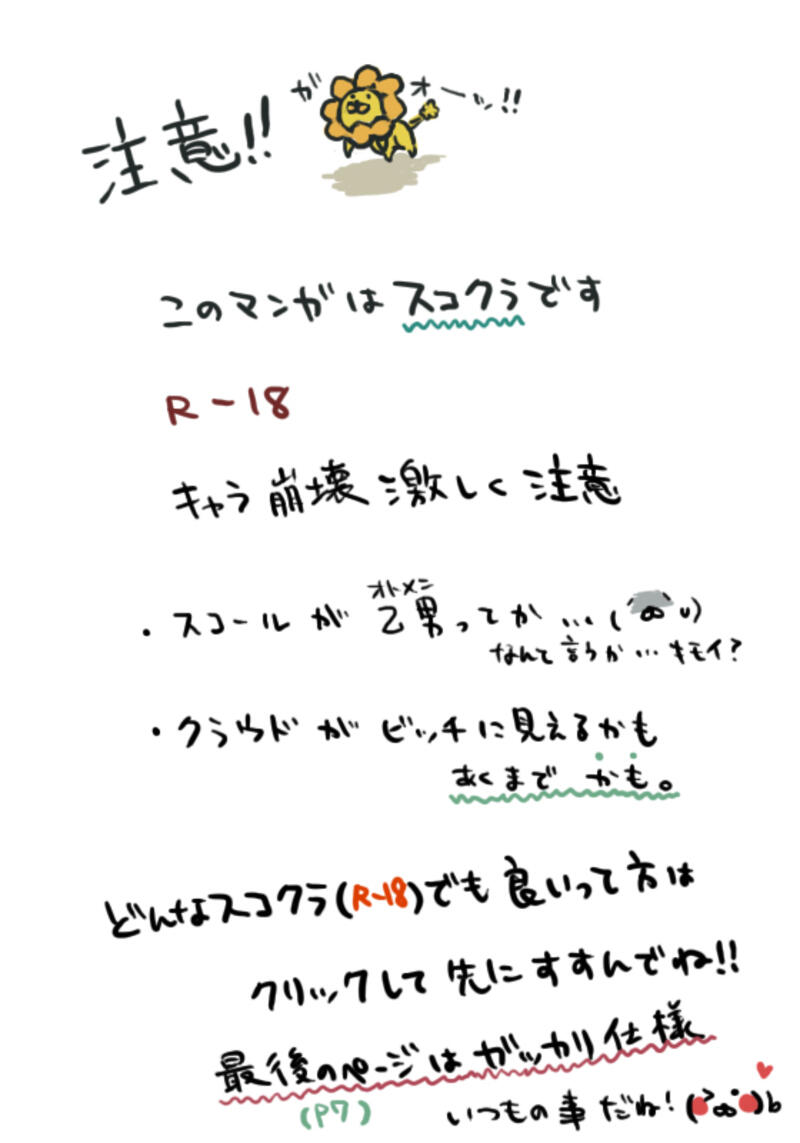 注意!!
がオーッ!!
このマンガはスコクラです
R-18
キャラ崩壊激しく注意
・スコールが乙男ってか…(
オトメン
なんて言うか…キモイ?
・クラウドがビッチに見えるかも
あくまでかも。
どんなスコクラ(R-18)でも良いって方は
クリックして先にすすんでね!!
最後のページはガッカリ仕様
(P7)
いつもの事だね!